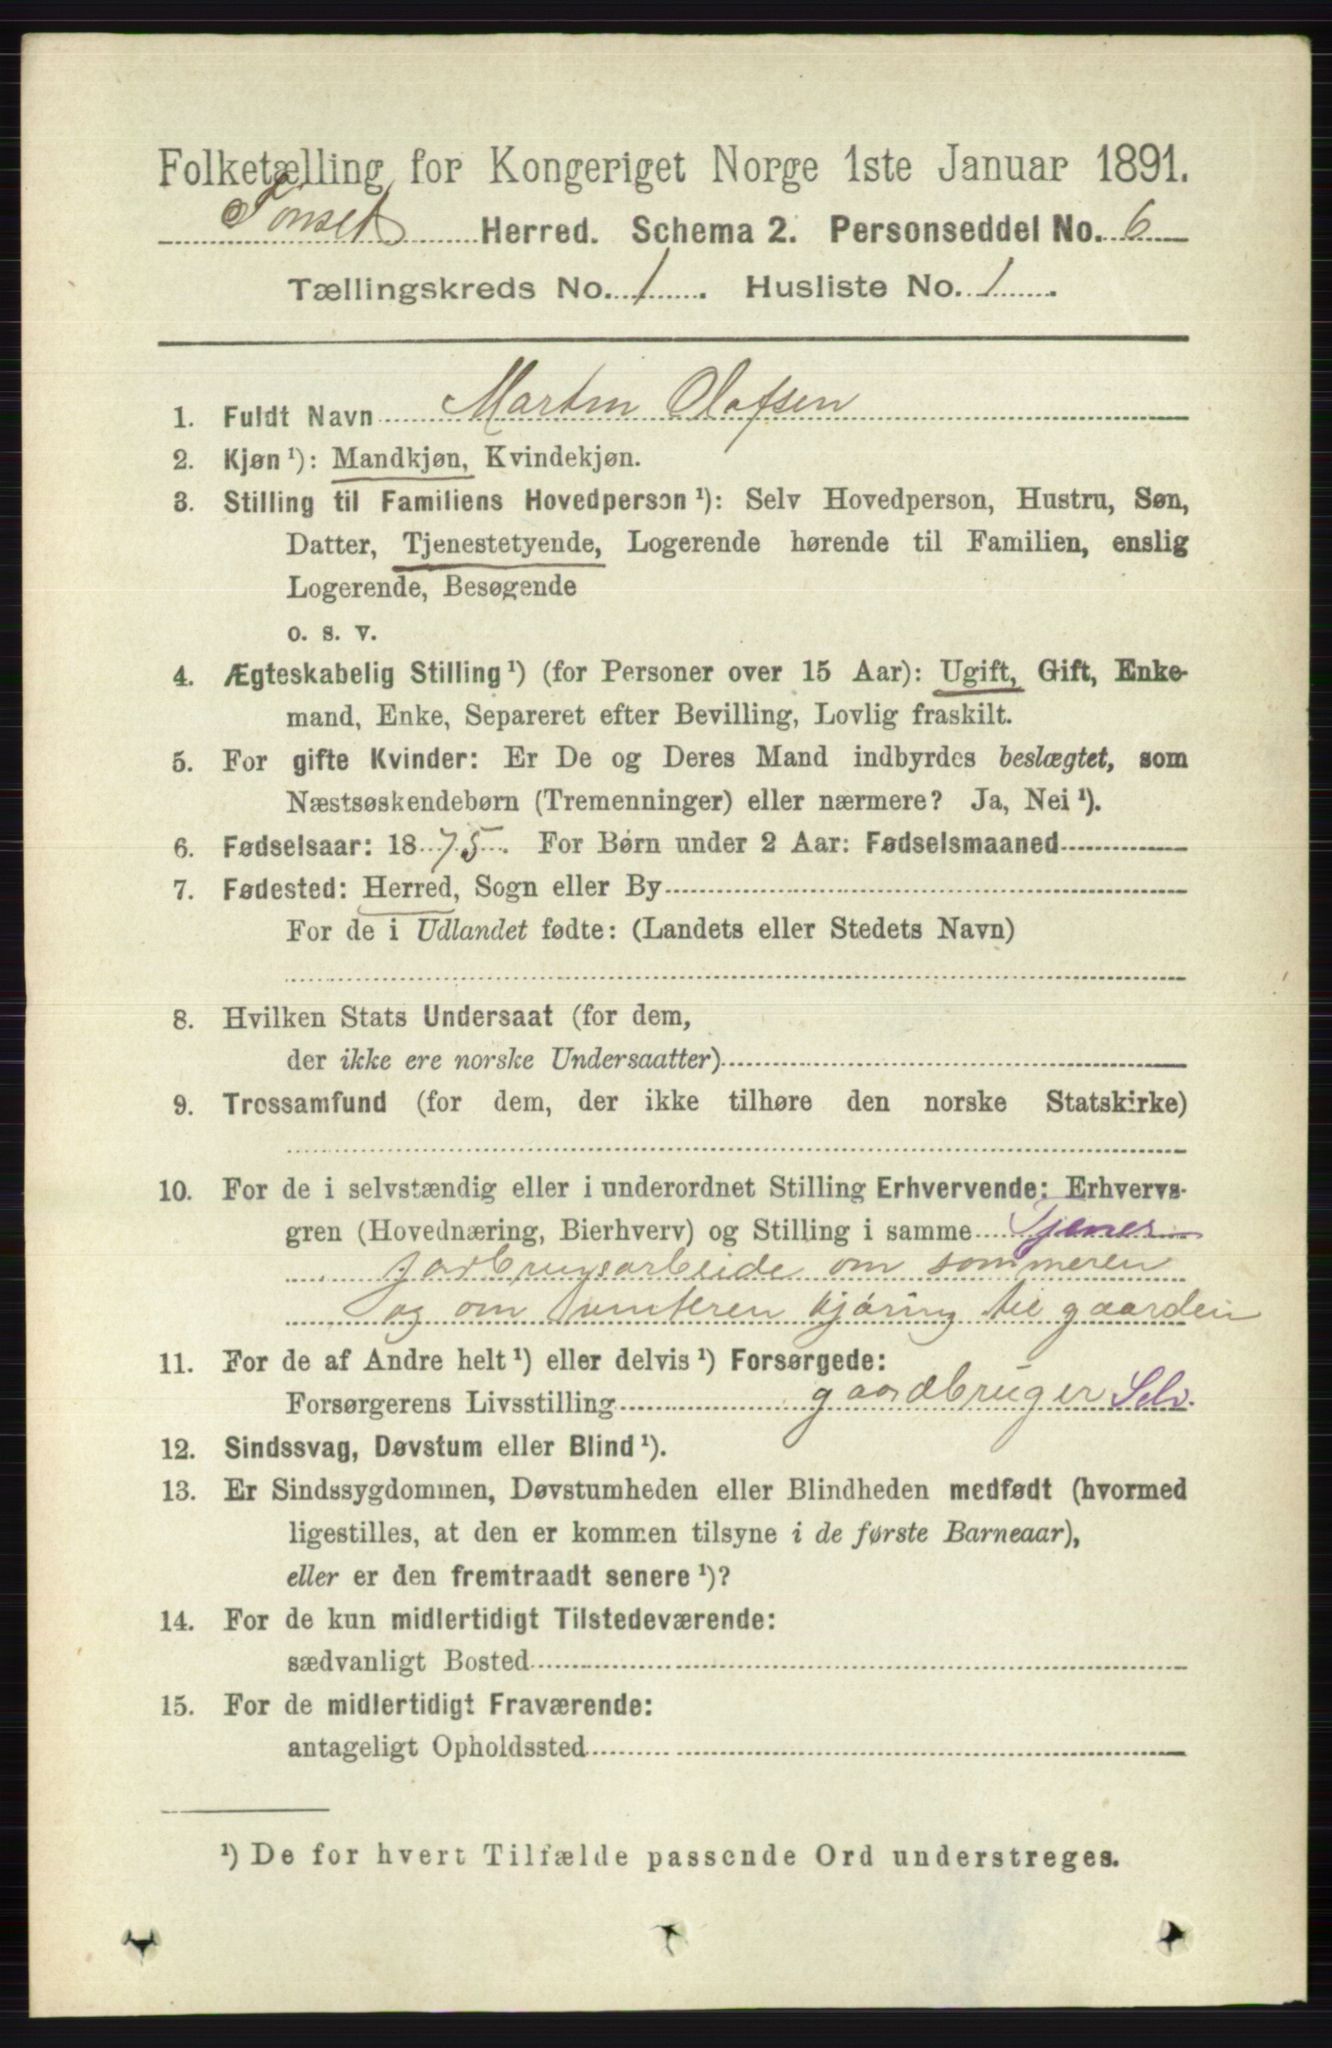 Folketælling for Kongeriget Norge 1ste Januar 1891.
Tønset Herred. Schema 2. Personseddel No. 6
Tællingskreds No. 1. Husliste No. 1.
1. Fuldt Navn Martin Olafsen
2. Kjøn ¹): Mandkjøn, Kvindekjøn.
3. Stilling til Familiens Hovedperson ¹): Selv Hovedperson, Hustru, Søn,
Datter, Tjenestetyende, Logerende hørende til Familien, enslig
Logerende, Besøgende
o. s. v.
4. Ægteskabelig Stilling ¹) (for Personer over 15 Aar): Ugift, Gift, Enke-
mand, Enke, Separeret efter Bevilling, Lovlig fraskilt.
5. For gifte Kvinder: Er De og Deres Mand indbyrdes beslægtet, som
Næstsøskendebørn (Tremenninger) eller nærmere? Ja, Nei ¹).
6. Fødselsaar: 1875. For Børn under 2 Aar: Fødselsmaaned
7. Fødested: Herred, Sogn eller By
For de i Udlandet fødte: (Landets eller Stedets Navn)
8. Hvilken Stats Undersaat (for dem,
der ikke ere norske Undersaatter)
9. Trossamfund (for dem, der ikke tilhøre den norske Statskirke)
10. For de i selvstændig eller i underordnet Stilling Erhvervende: Erhvervs-
gren (Hovednæring, Bierhverv) og Stilling i samme Tjener
jorbrugsarbeide om sommeren
og om vinteren kjøring til gaarden
11. For de af Andre helt ¹) eller delvis ¹) Forsørgede:
Forsørgerens Livsstilling gaardbruger Selv.
12. Sindssvag, Døvstum eller Blind ¹).
13. Er Sindssygdommen, Døvstumheden eller Blindheden medfødt (hvormed
ligestilles, at den er kommen tilsyne i de første Barneaar),
eller er den fremtraadt senere ¹)?
14. For de kun midlertidigt Tilstedeværende:
sædvanligt Bosted
15. For de midlertidigt Fraværende:
antageligt Opholdssted
¹) De for hvert Tilfælde passende Ord understreges.